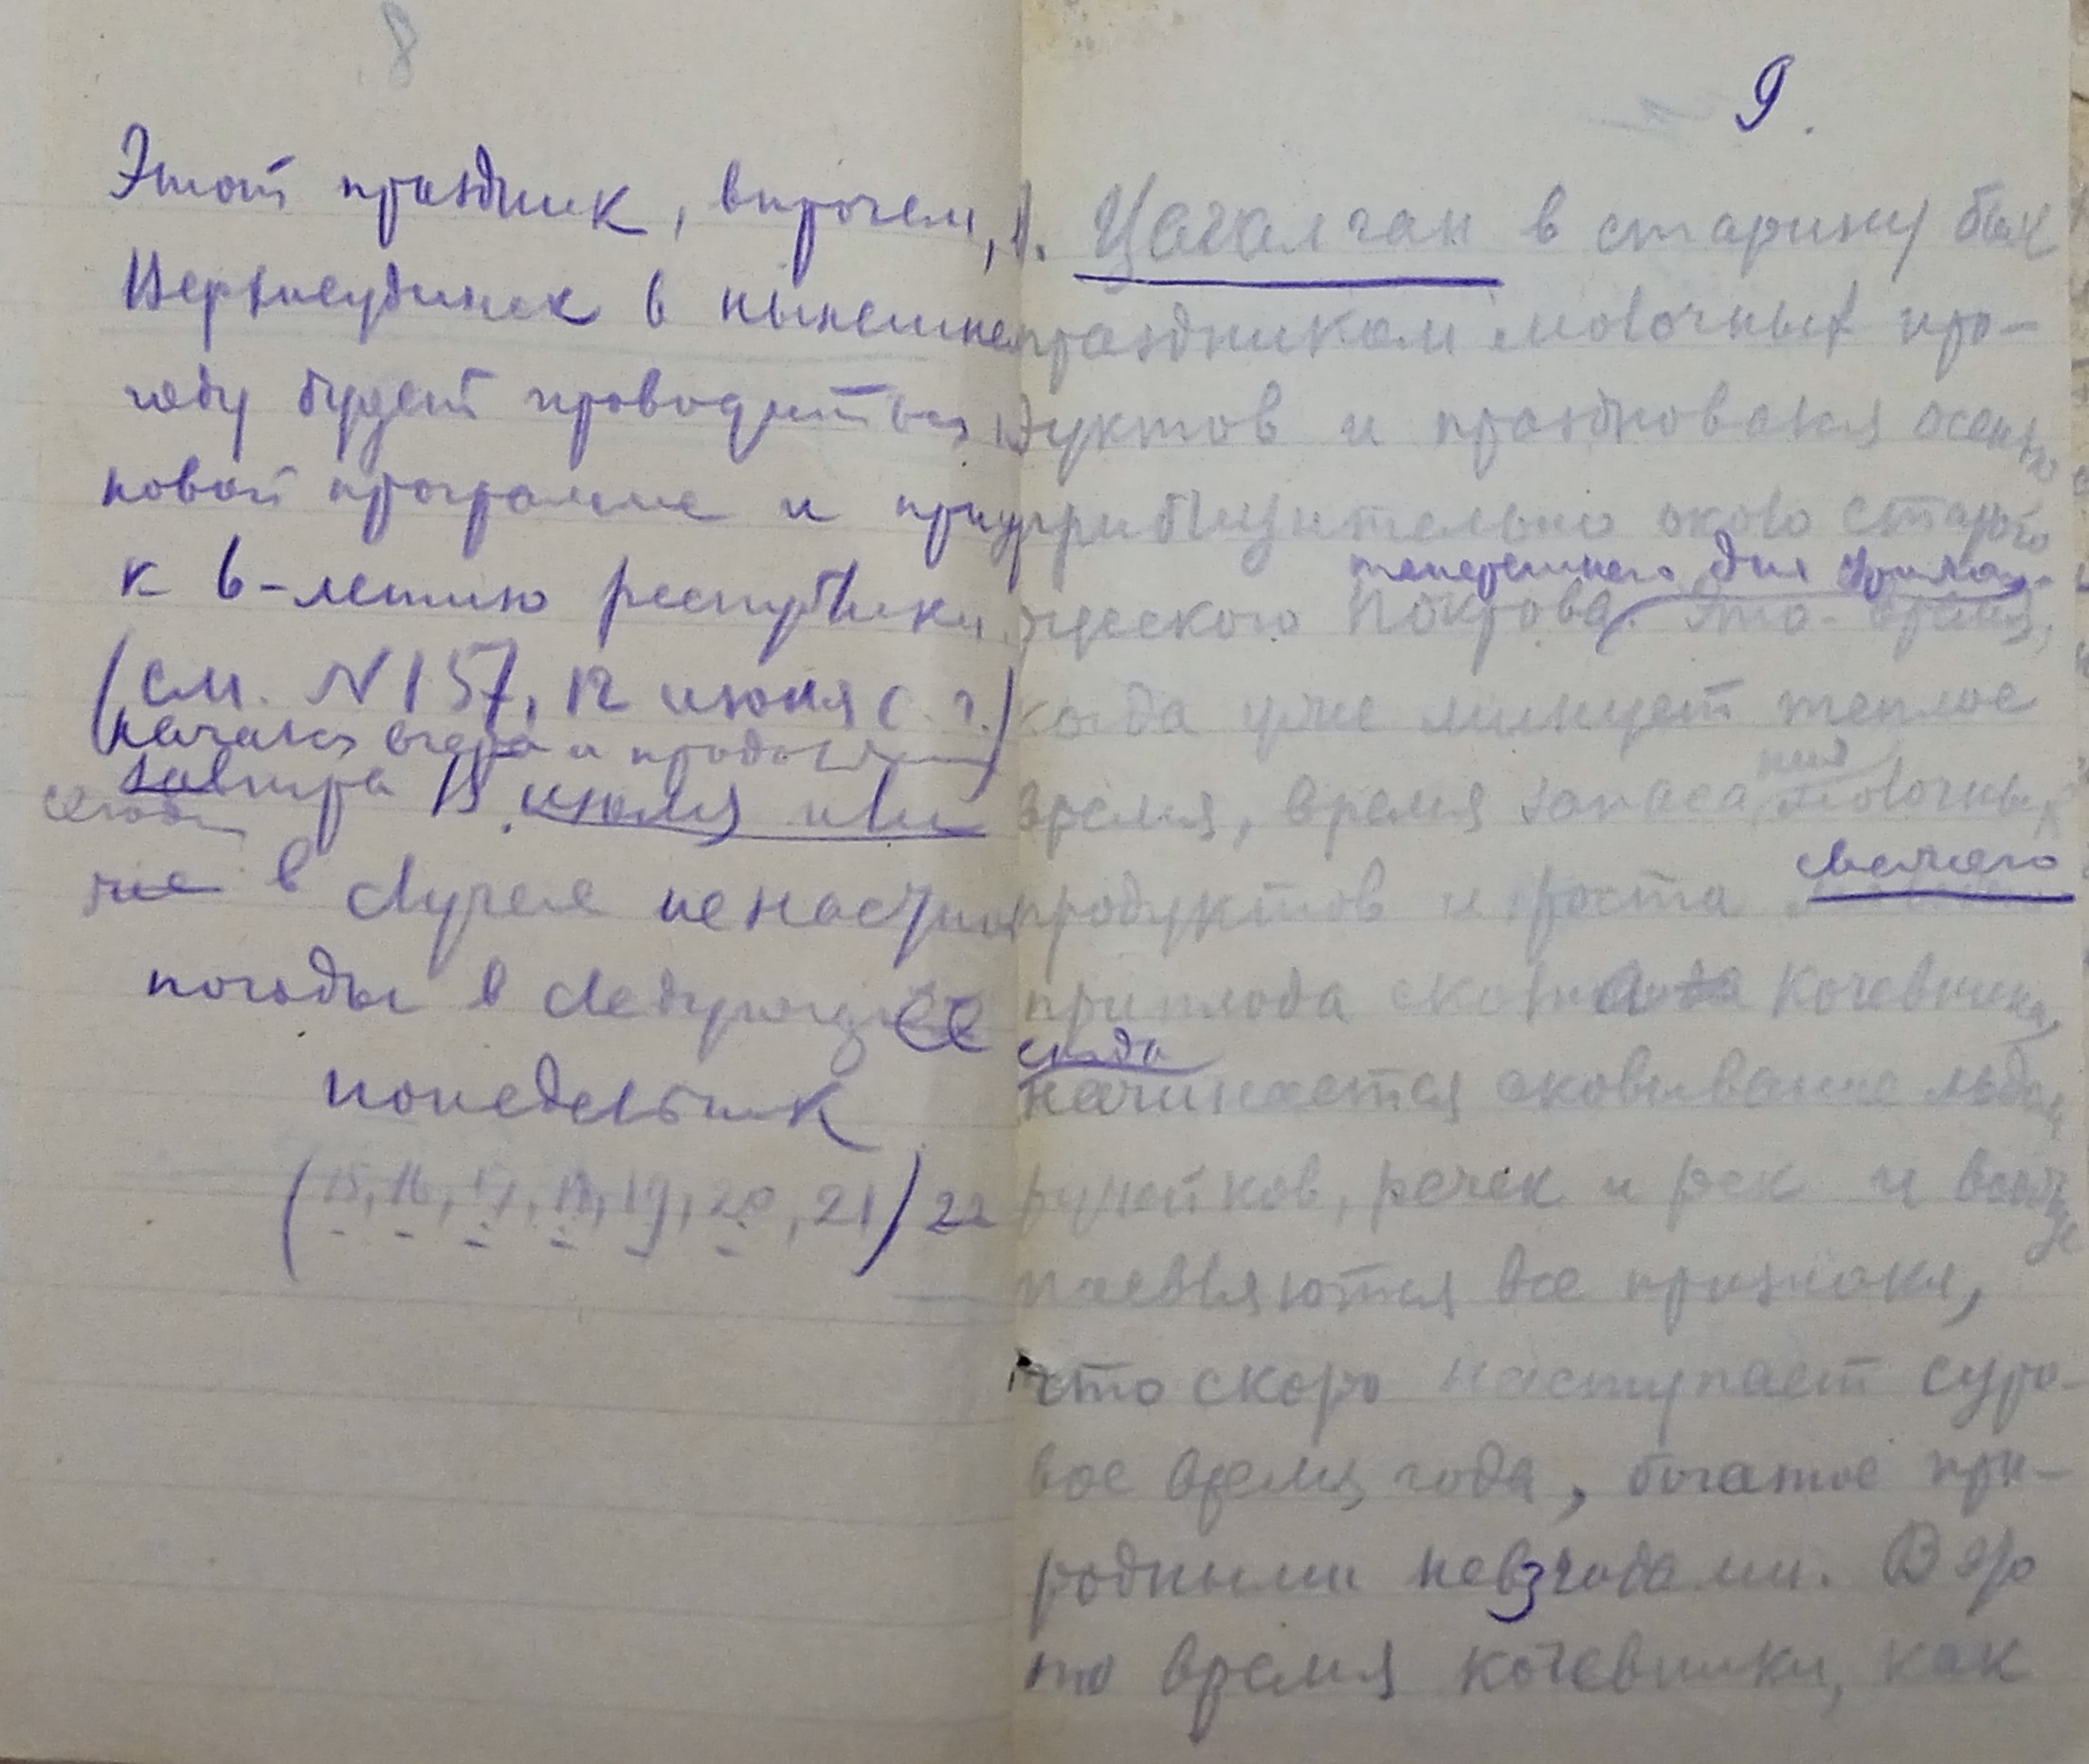 8
Этот праздник, впрочем, в
Верхнеудинск в нынешне
году будет проводиться
новой программе и приур
к 6-летию республики
(см. N 157, 12 июня с. г.)
начался вчера и продолж
завтра 15 июля или
сегодн
же в случае ненастной
погоды в следующ ее
понедельник
(15, 16, 17, 18, 19, 20, 21) 22
9.
1. Цагалган в старину был
праздником молочных про-
дуктов и праздновался осенью
приблизительно около старого
теперешнего дня
русского Покрова. Это время,
когда уже минует теплое
время, время запаса молочных
ния
свежего
продуктов и роста
приплода скота кочевника,
когда
начинается сковывание льдом
ручейков, речек и рек и вообще
появляются все признаки,
что скоро наступает суро-
вое время года, богатое при-
родными невзгодами. В это
то время кочевники, как